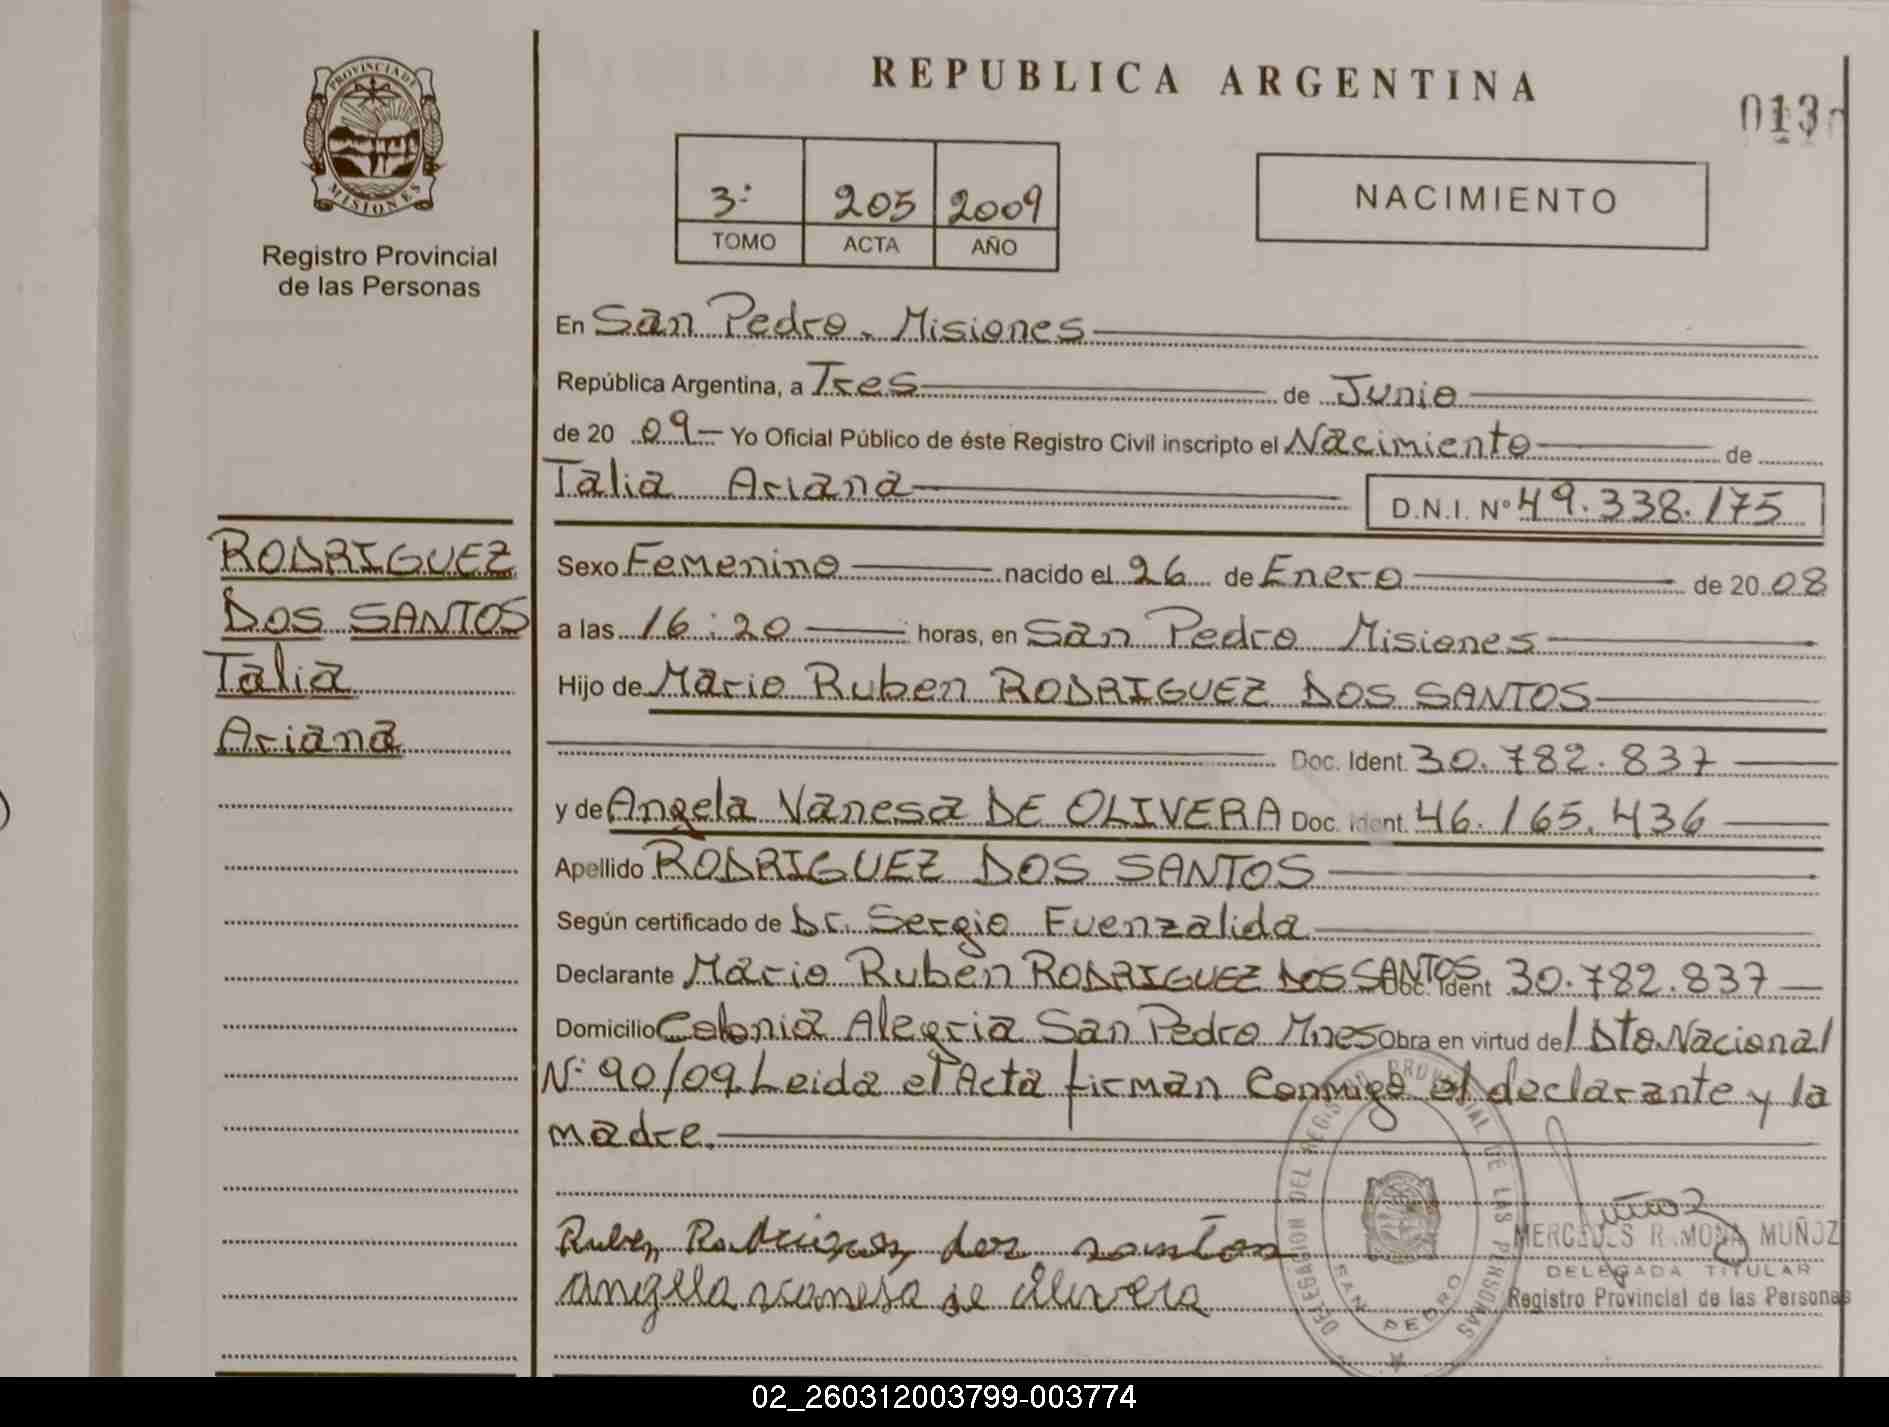 PROVINCIA DE
MISIONES
Registro Provincial
de las Personas
REPUBLICA ARGENTINA
013
3º 205 2009
TOMO ACTA AÑO
NACIMIENTO
En San Pedro - Misiones
República Argentina, a Tres de Junio
de 20 09 Yo Oficial Público de éste Registro Civil inscripto el Nacimiento de
Talia Ariana D.N.I. Nº 49.338.175
RODRIGUEZ
DOS SANTOS
Talia
Ariana
Sexo Femenino nacido el 26 de Enero de 20 08
a las 16:20 horas, en San Pedro Misiones
Hijo de Mario Ruben RODRIGUEZ DOS SANTOS
Doc. Ident. 30.782.837
y de Angela Vanesa DE OLIVERA Doc. Ident. 46.165.436
Apellido RODRIGUEZ DOS SANTOS
Según certificado de Dr. Sergio Fuenzalida
Declarante Mario Ruben RODRIGUEZ DOS SANTOS Doc. Ident 30.782.837
Domicilio Colonia Alegria San Pedro Mnes Obra en virtud del Dto. Nacional
Nº 90/09. Leida el Acta firman Conmigo el declarante y la
madre.
Ruben Rodriguez dos santos
angella vanesa de olivera
DELEGACION DEL REGISTRO PROVINCIAL DE LAS PERSONAS
SAN PEDRO
Muñoz
MERCEDES RAMONA MUÑOZ
DELEGADA TITULAR
Registro Provincial de las Personas
02_260312003799-003774